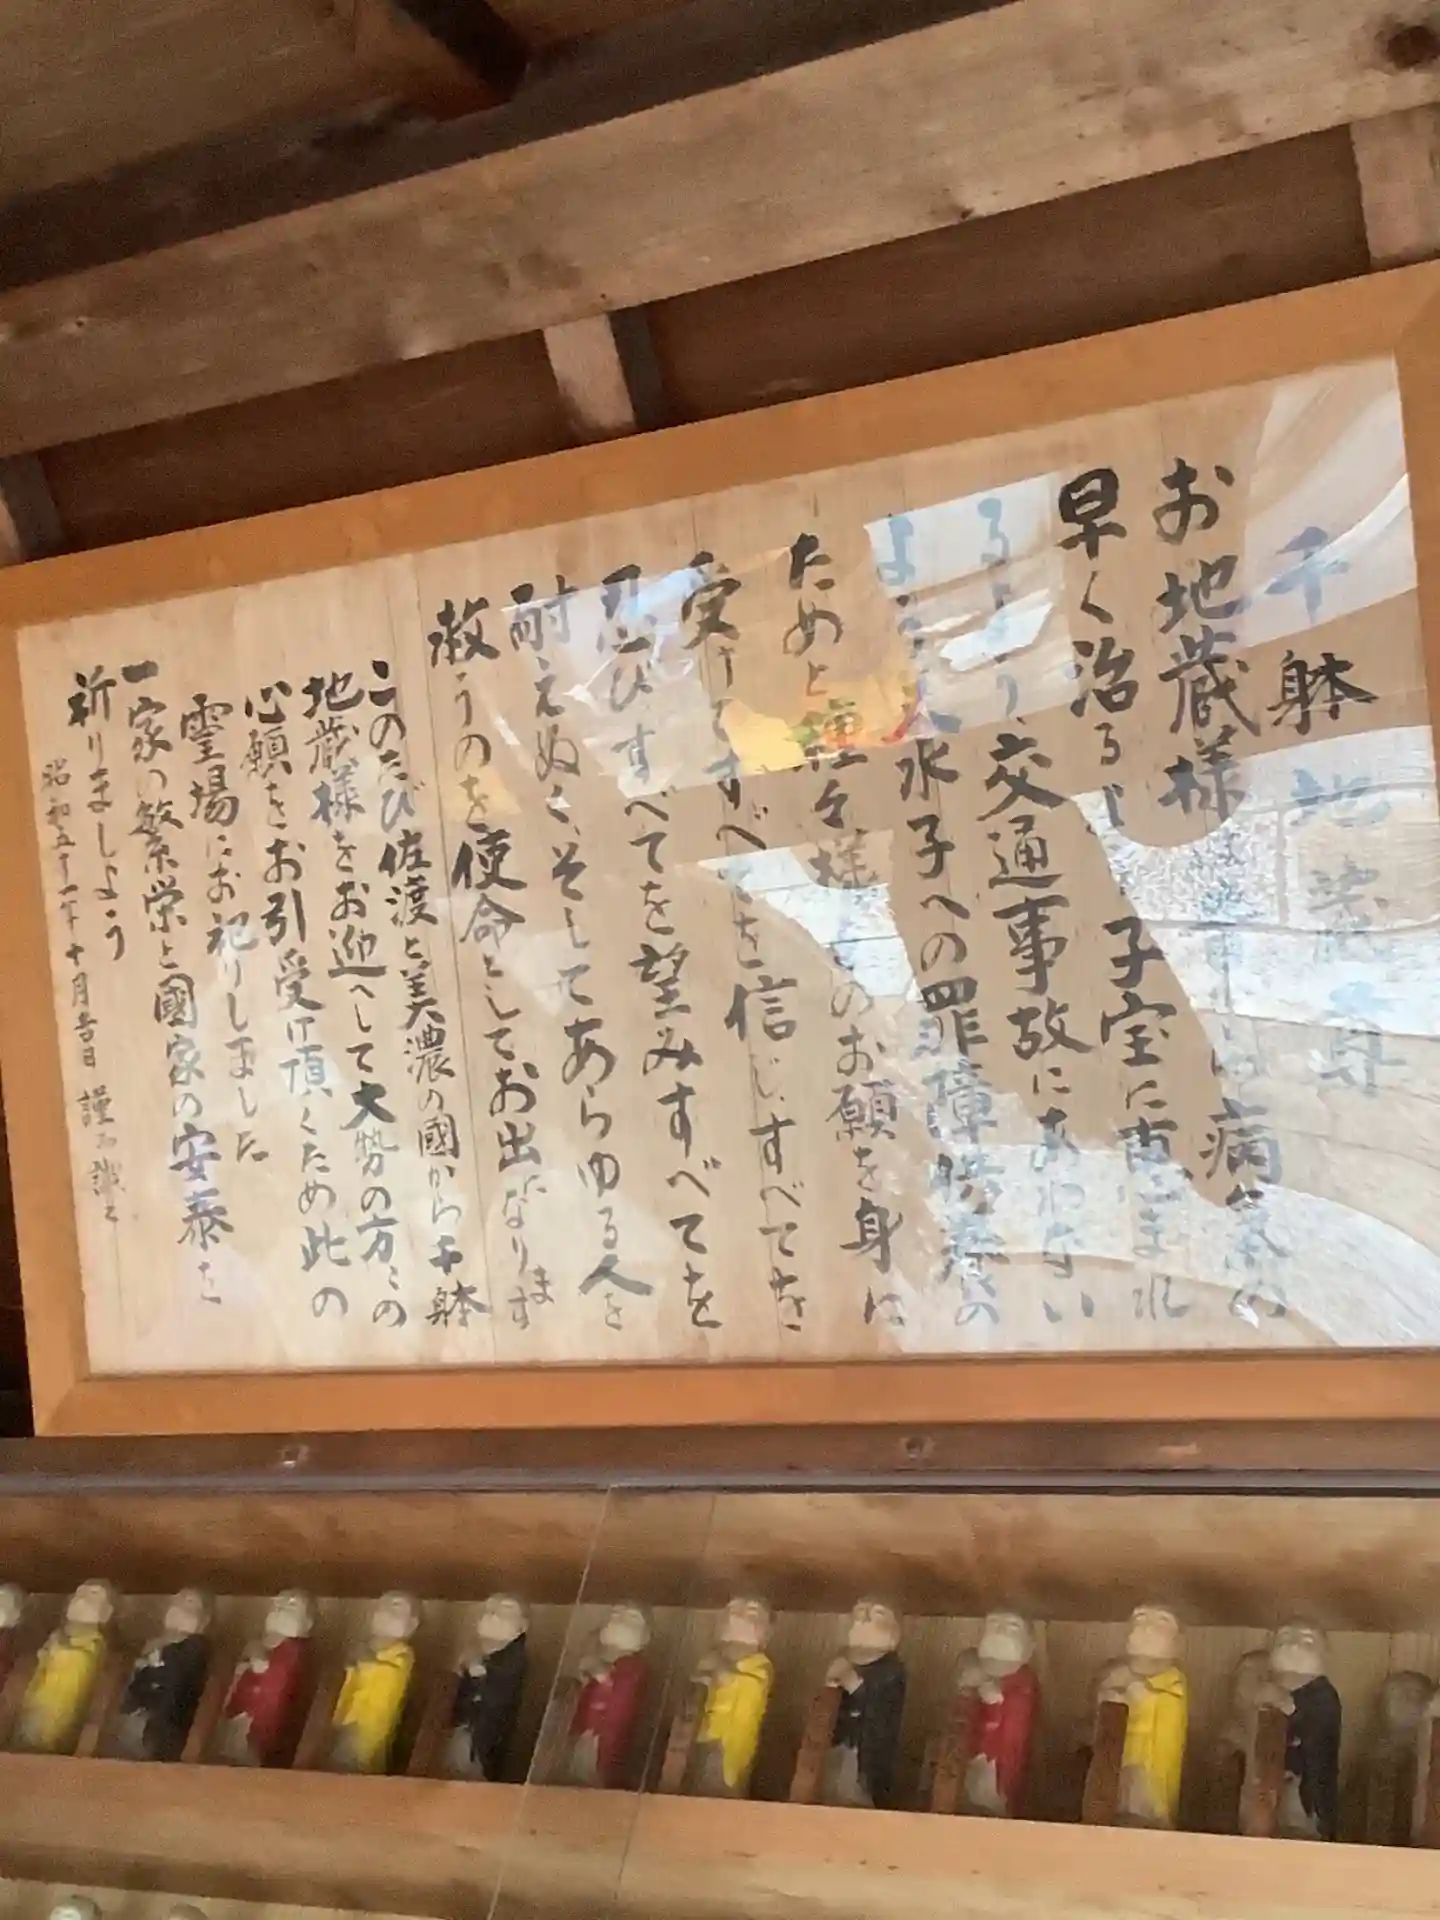 千躰地蔵尊
お地蔵様は世の中の病気の
早く治るよう子宝に恵まれ
るよう、交通事故にあわない
よう又水子への罪障供養の
ためと種々様々のお願を身に
受けてすべてを信じ、すべてを
忍び、すべてを望みすべてを
耐えぬく、そしてあらゆる人を
救うのを使命としてお出になります
このたび佐渡と美濃の國から千躰
地蔵様をお迎へして大勢の方々の
心願をお引受け頂くため此の
霊場にお祀りしました
一家の繁栄と國家の安泰を
祈りましょう
昭和五十一年十月吉日 謹